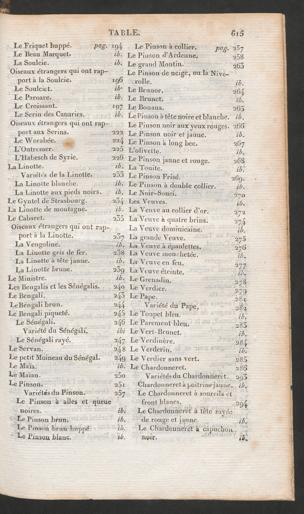 TABLE. 615
Le Friquet huppé. pag. 194
Le Beau Marquet. ib.
La Soulcie. ib.
Oiseaux étrangers qui ont rap-
port à la Soulcie. 196
Le Soulciet. ib.
Le Paroare. ib.
Le Croissant. 197
Le Serin des Canaries. ib.
Oiseaux étrangers qui ont rap-
port aux Serins. 222
Le Worabée. 224
L'Outremer. 225
L'Habesch de Syrie. 226
La Linotte. ib.
Variétés de la Linotte. 233
La Linotte blanche. ib.
La Linotte aux pieds noirs. ib.
Le Gyntel de Strasbourg. 234
La Linotte de montagne. ib.
Le Cabaret. 235
Oiseaux étrangers qui ont rap-
port à la Linotte. 237
La Vengoline. ib.
La Linotte gris de fer. 238
La Linotte à tête jaune. ib.
La Linotte brune. 239
Le Ministre. ib.
Les Bengalis et les Sénégalis. 240
Le Bengali. 243
Le Bengali brun. 244
Le Bengali piqueté. 245
Le Sénégali. 246
Variété du Sénégali. ibi
Le Sénégali rayé. 247
Le Serevan. 248
Le petit Moineau du Sénégal. 249
Le Maïa. ib.
Le Maïan. 250
Le Pinson. 251
Variétés du Pinson. 257
Le Pinson à ailes et queue
noires. ib.
Le Pinson brun. ib.
Le Pinson brun huppé. ib.
Le Pinson blanc. ib.
Le Pinson à collier. pag. 257
Le Pinson d'Ardenne. 258
Le grand Montin. 263
Le Pinson de neige, ou la Nivé-
rolle. ib.
Le Brunor. 264
Le Brunet. ib.
Le Bonana. 265
Le Pinson à tête noire et blanche. ib.
Le Pinson noir aux yeux rouges. 266
Le Pinson noir et jaune. ib.
Le Pinson à long bec. 267
L'olivette. ib.
Le Pinson jaune et rouge. 268
La Touite. ib.
Le Pinson Frisé. 269
Le Pinson à double collier. ib.
Le Noir-Souci. 270
Les Veuves. ib.
La Veuve au collier d'or. 272
La Veuve à quatre brins. 274
La Veuve dominicaine. ib.
La grande Veuve. 275
La Veuve à épaulettes. 276
La Veuve mouchetée. ib.
La Veuve en feu. 277
La Veuve éteinte. ib.
Le Grenadin. 278
Le Verdier.
Le Pape.
Variété du Pape.
Le Toupet bleu. ib.
Le Parement bleu. 283
Le Vert-Brunet. ib.
Le Verdinère. 284
Le Verderin. ib.
Le Verdier sans vert. 285
Le Chardonneret. 286
Variétés du Chardonneret. 293
Chardonneret à poitrine jaune. ib.
Le Chardonneret à sourcils et
front blancs. 294
Le Chardonneret à tête rayée
de rouge et jaune. ib.
Le Chardonneret à capuchon
noir. ib.